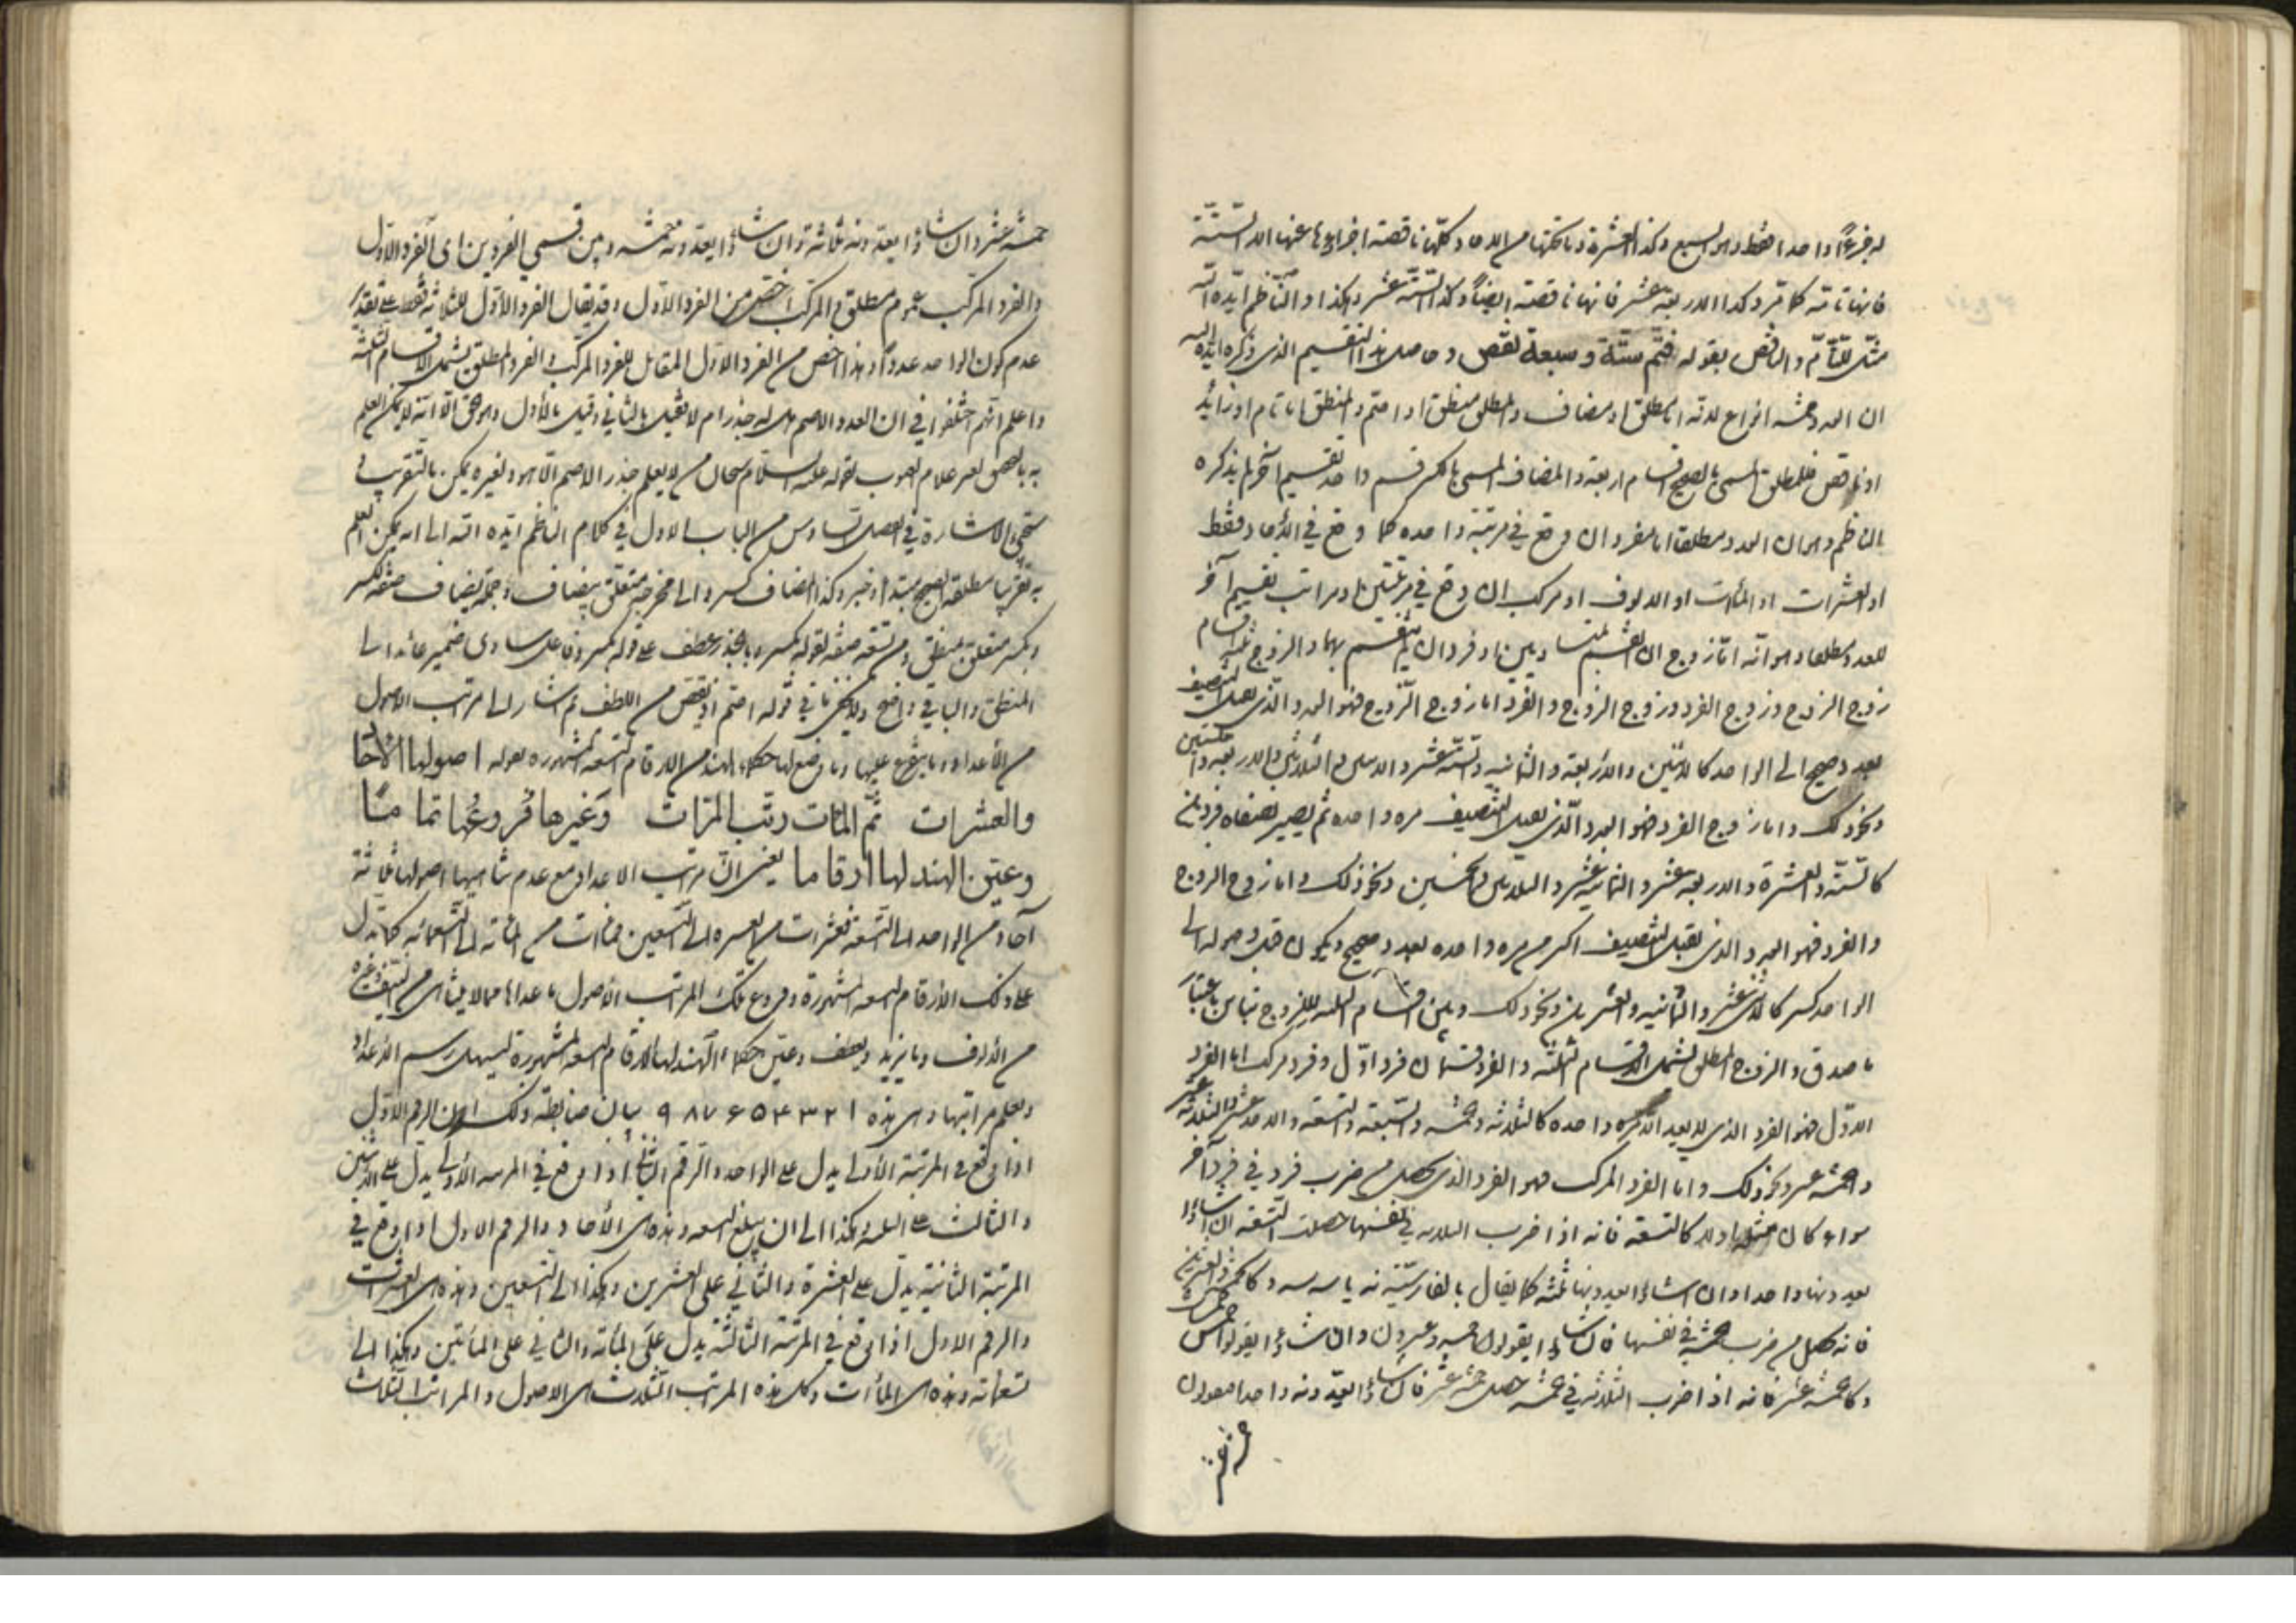 له جزءًا واحدا فقط وهو السبع وكذا العشرة وما تحتها من الآحاد وكلها ناقصة اجزاؤها عنها الا الستة
فانها تامة كما مر وكذا الاربعة عشر فانها ناقصة ايضًا وكذا الستة عشر وهكذا والناظم ايده الله
مثل للتام والناقص بقوله فتم ستة وسبعة نقص وحاصل هذا التقسيم الذي ذكره ايده الله
ان العدد خمسة انواع لانه اما مطلق او مضاف والمطلق منطق او اصم والمنطق اما تام او زائد
او ناقص فللمطلق المسمى بالصحيح اقسام اربعة والمضاف المسمى بالكسر قسم واحد تقسيم آخر لم يذكره
الناظم وهو ان العدد مطلقا اما مفرد ان وقع في مرتبة واحدة كما وقع في الآحاد فقط
او العشرات او المئات او الالوف او مركب ان وقع في مرتبتين او مراتب تقسيم آخر
للعدد مطلقا وهو انه اما زوج ان انقسم بمتساويين او فرد ان لم ينقسم بهما والزوج ثلثة اقسام
زوج الزوج وزوج الفرد وزوج الزوج والفرد اما زوج الزوج فهو العدد الذي يقبل التنصيف
بعدد صحيح الى الواحد كالاثنين والاربعة والثمانية والستة عشر والاثنين والثلاثين والاربعة والستين
ونحو ذلك واما زوج الفرد فهو العدد الذي يقبل التنصيف مرة واحدة ثم يصير نصفاه فردين
كالستة والعشرة والاربعة عشر والثمانية عشر والثلاثين والخمسين ونحو ذلك واما زوج الزوج
والفرد فهو العدد الذي يقبل التنصيف اكثر من مرة واحدة بعدد صحيح ويكون قبل وصوله الى
الواحد كسر كالاثني عشر والثمانية والعشرين ونحو ذلك وبين اقسام الثلثة للزوج تباين باعتبار
ما صدق والزوج المطلق يشمل الاقسام الثلثة والفرد قسمان فرد اول وفرد مركب اما الفرد
الاول فهو الفرد الذي لا يعده الا مرة واحدة كالثلاثة والخمسة والسبعة والتسعة والاحد عشر والثلاثة عشر
والخمسة عشر ونحو ذلك واما الفرد المركب فهو الفرد الذي يحصل من ضرب فرد في فرد آخر
سواء كان مثله او لا كالتسعة فانه اذا ضرب الثلاثة في نفسها حصلت التسعة ان شاؤا
يعدونها واحدا وان شاؤا يعدونها ثلثة كما يقال بالفارسية نه يا سه سه وكالخمسة والعشرين
فانه يحصل من ضرب خمسة في نفسها فان شاؤا يقولون خمسة وعشرون وان شاؤا يقولوا خمس خمس
وكالخمسة عشر فانه اذا ضرب الثلاثة في خمسة حصل خمسة عشر فان شاؤا يعدونه واحدا فيقولون
خمسة عشر وان شاؤا يعدونه ثلاثة وان شاؤا يعدونه خمسة وبين قسمي الفردين اى الفرد الاول
والفرد المركب عموم مطلق والمركب اخص من الفرد الاول وقد يقال الفرد الاول للثلاثة فقط على تقدير
عدم كون الواحد عددًا وهذا اخص من الفرد الاول المقابل للفرد المركب والفرد المطلق يشمل الاقسام الثلثة
واعلم انهم اختلفوا في ان العدد الاصم هل له جذر ام لا فقيل بالثاني وقيل بالأول وهو الحق الا انه لا يمكن العلم
به بالتحقيق لغير علام الغيوب لقوله عليه السلام سبحان من لا يعلم جذر الاصم الا هو ولغيره يمكن بالتقريب و
ستجيء الاشارة في الفصل السادس من الباب الاول في كلام الناظم ايده الله الى انه يمكن العلم
به تقريبا مطلقه الصحيح مبتدأ وخبر وكذا المضاف كسر والى مخرجه متعلق بمضاف وجملة يضاف صفة لكسر
وبكسر متعلق بمنطق ومن تسعة صفة لقوله كسر وبالجذر عطف على قوله كسر وفاعل ساوى ضمير عائد الى
المنطق والباقي واضح ولا يخفى ما في قوله اصم او نقص من اللطف ثم اشار الى مراتب الاصول
من الأعداد وما يتفرع عليها وما وضع لها حكماء الهند من الارقام التسعة المشهورة بقوله اصولها الآحاد
والعشرات ثم المئات رتب المرات وغيرها فروعها تماما
وعين الهند لها ارقاما يعنى ان مراتب الاعداد مع عدم تناهيها اصولها ثلاثة
آحاد من الواحد الى التسعة فعشرات من العشرة الى التسعين فمئات من المائة الى التسعمائة كما تدل
على ذلك الأرقام التسعة المشهورة وفروع تلك المراتب الأصول ما عداها مما لا يتناهى من المتفرعة
من الألوف وما يزيد ويضعف وعين حكماء الهند لها الارقام التسعة المشهورة ليسهل رسم الأعداد
ويعلم مراتبها وهي هذه ١ ٢ ٣ ٤ ٥ ٦ ٧ ٨ ٩ بيان ضابطة ذلك ان الرقم الأول
اذا وقع في المرتبة الأولى يدل على الواحد والرقم الثاني اذا وقع في المرتبة الأولى يدل على الاثنين
والثالث على الثلثة وهكذا الى ان يبلغ التسعة وهذه هي الآحاد والرقم الاول اذا وقع في
المرتبة الثانية يدل على العشرة والثاني على العشرين وهكذا الى التسعين وهذه هي العشرات
والرقم الاول اذا وقع في المرتبة الثالثة يدل على المأئة والثاني على المأتين وهكذا الى
تسعمائة وهذه هي المئات وكل هذه المراتب الثلاث هي الاصول والمراتب الثلاث